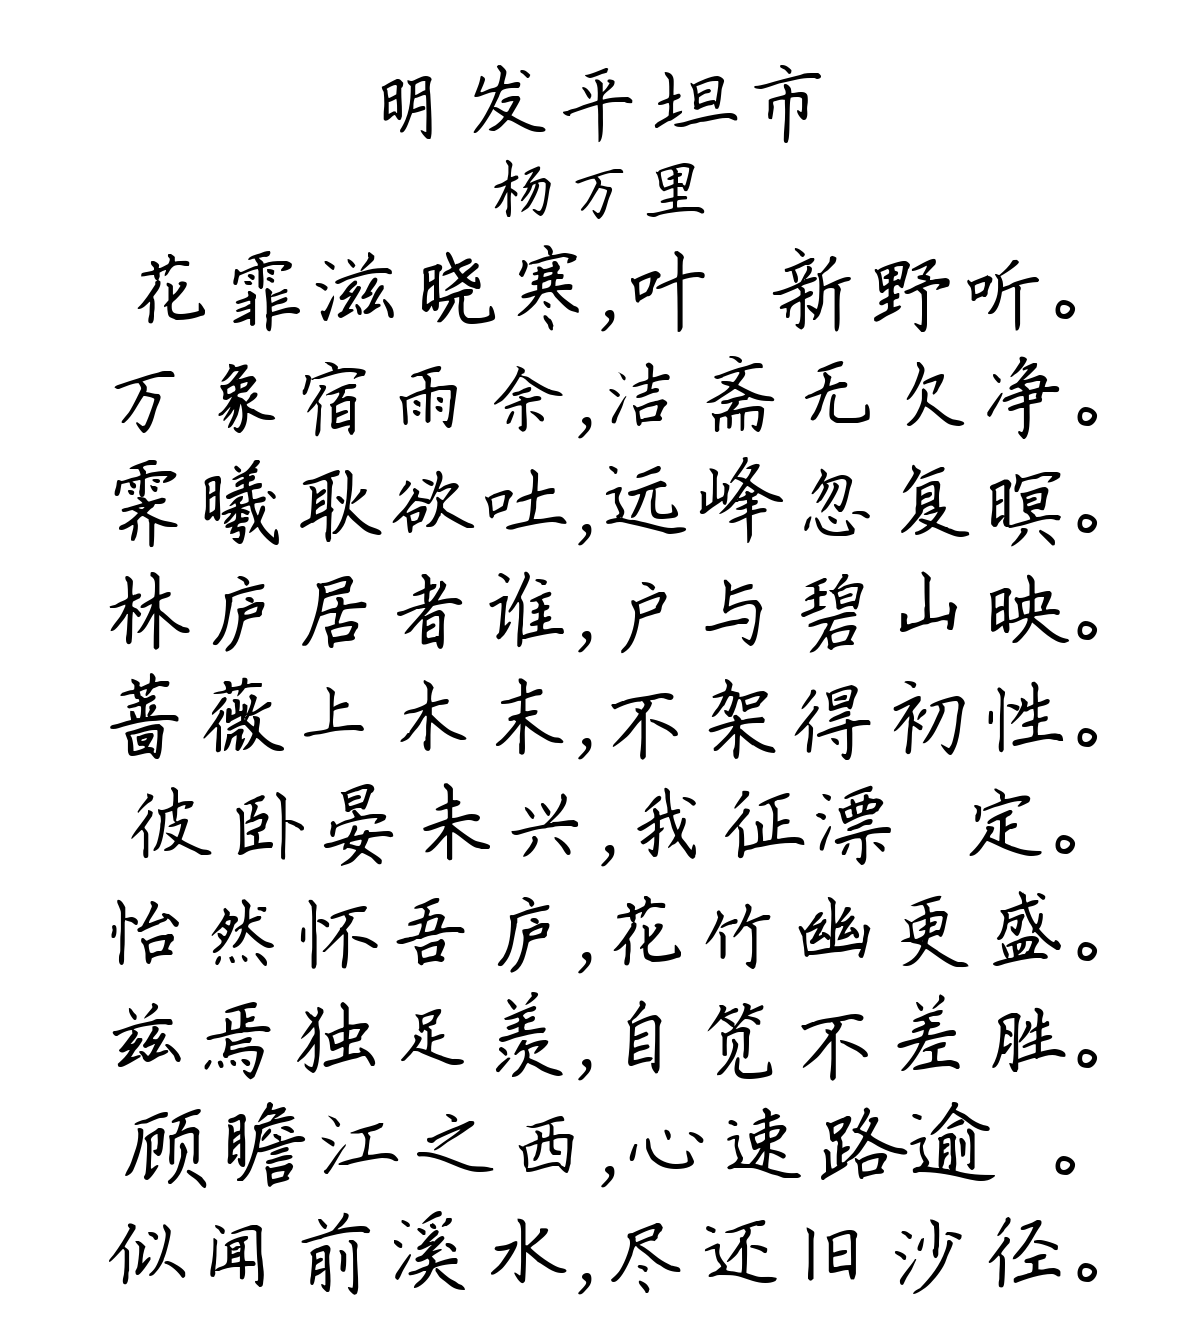 明发平坦市
杨万里
花霏滋晓寒,叶 新野听。
万象宿雨余,洁斋无欠净。
霁曦耿欲吐,远峰忽复暝。
林庐居者谁,户与碧山映。
蔷薇上木末,不架得初性。
彼卧晏未兴,我征漂 定。
怡然怀吾庐,花竹幽更盛。
兹焉独足羡,自笕不差胜。
顾瞻江之西,心速路逾 。
似闻前溪水,尽还旧沙径。